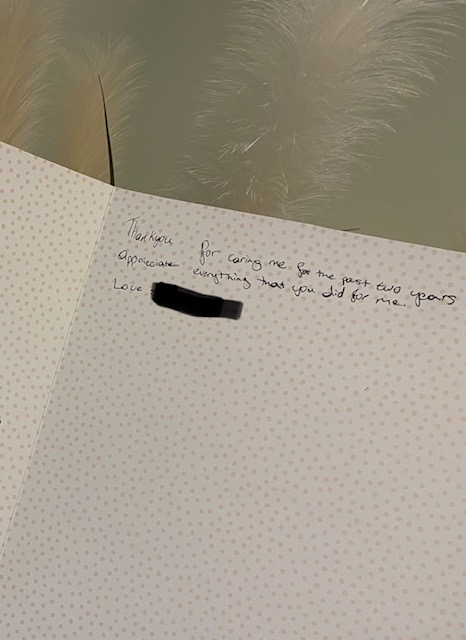 Thankyou for caring me for the past two years
Appreciate everything that you did for me.
Love